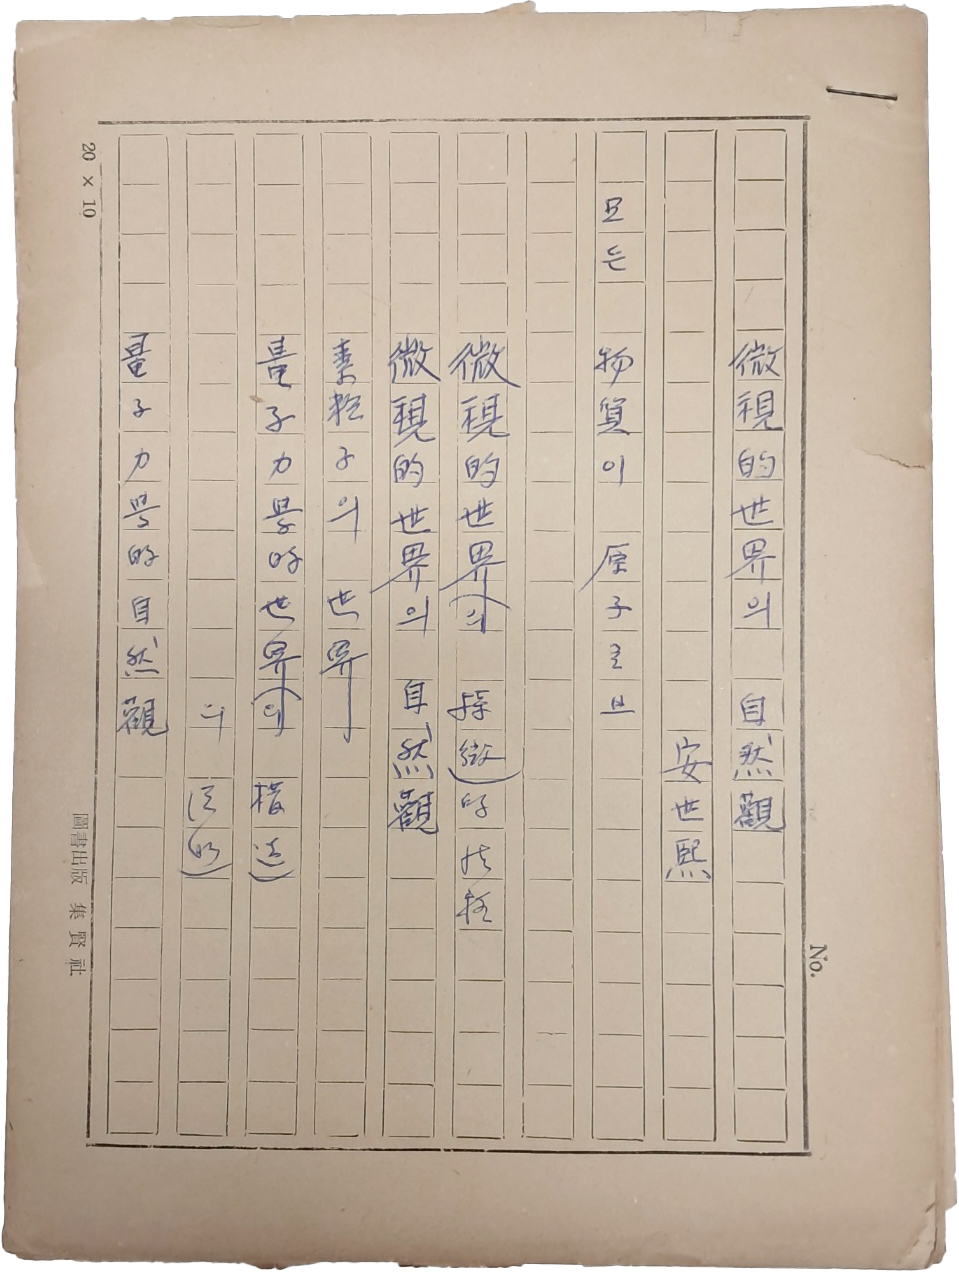 No.
微視的世界의 自然觀
安世熙
모든 物質이 原子로브
微視的世界의 的
微視的世界의 自然觀
素粒子의 世界
量子力學的世界의 構造
의
量子力學的自然觀
20 × 10
圖書出版 集賢社